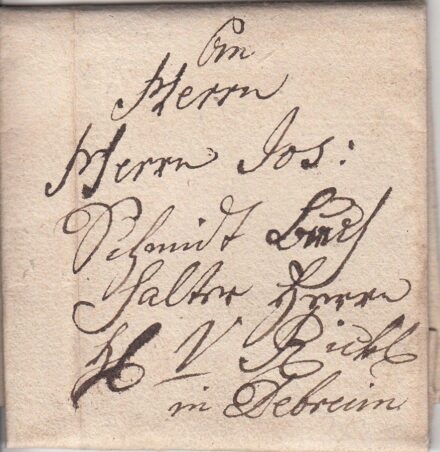 An
Herrn
Herrn Jos:
Schmidt Buch
halter Herrn
H V Rickl
in Debreim